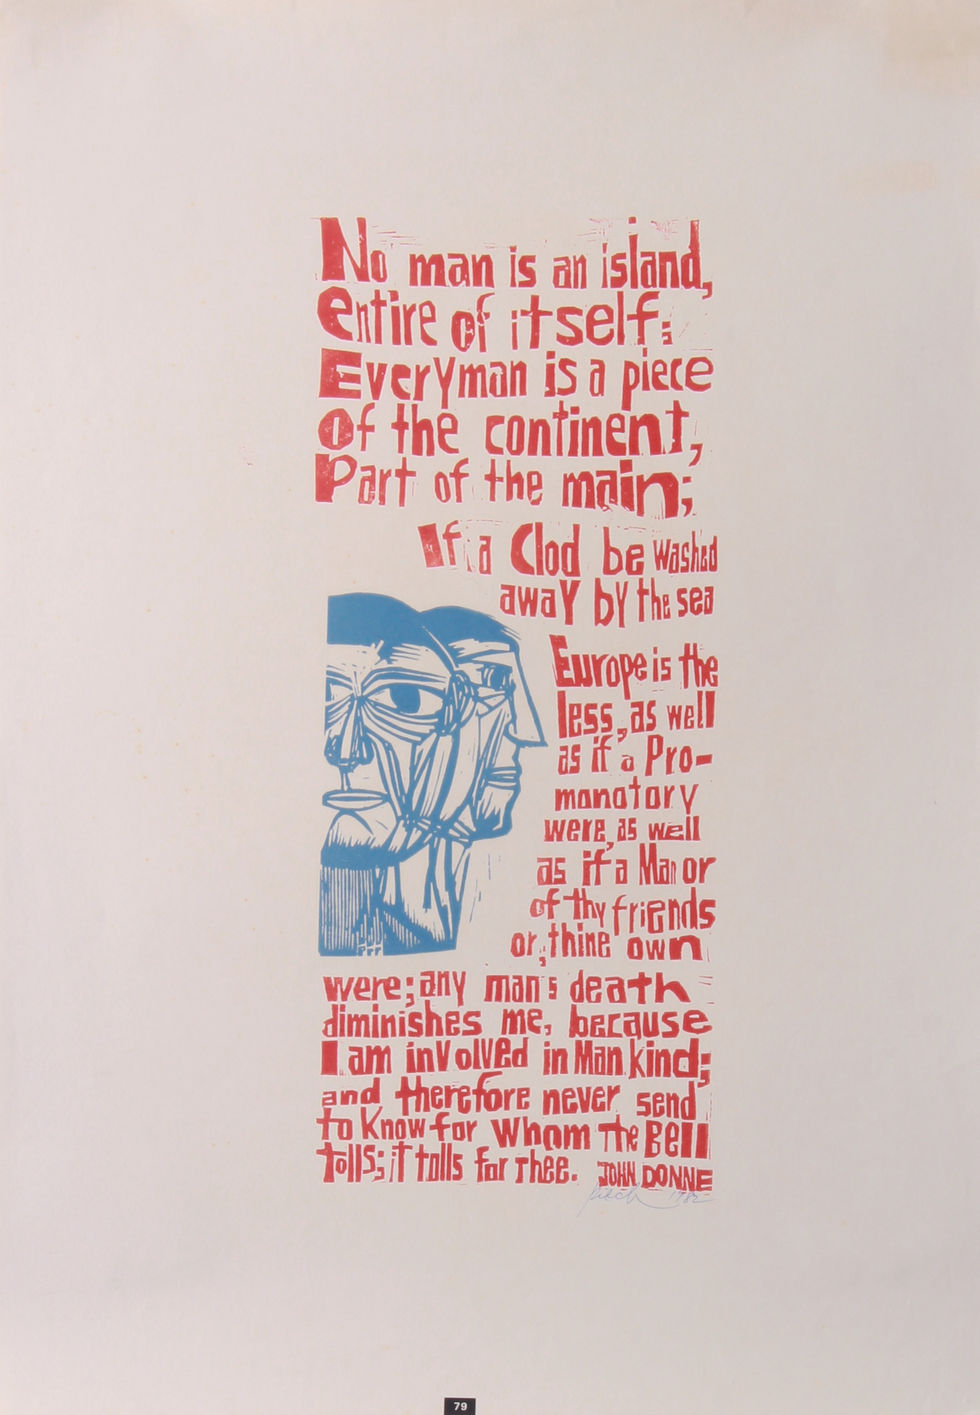 No man is an island,
entire of itself;
Everyman is a piece
of the continent,
Part of the main;
If a Clod be washed
away by the sea
Europe is the
less, as well
as if a Pro-
monotory
were, as well
as if a Man or
of thy friends
or, thine own
were; any man's death
diminishes me, because
I am involved in Man kind;
and therefore never send
to know for whom the Bell
tolls; it tolls for thee. JOHN DONNE
1982
79